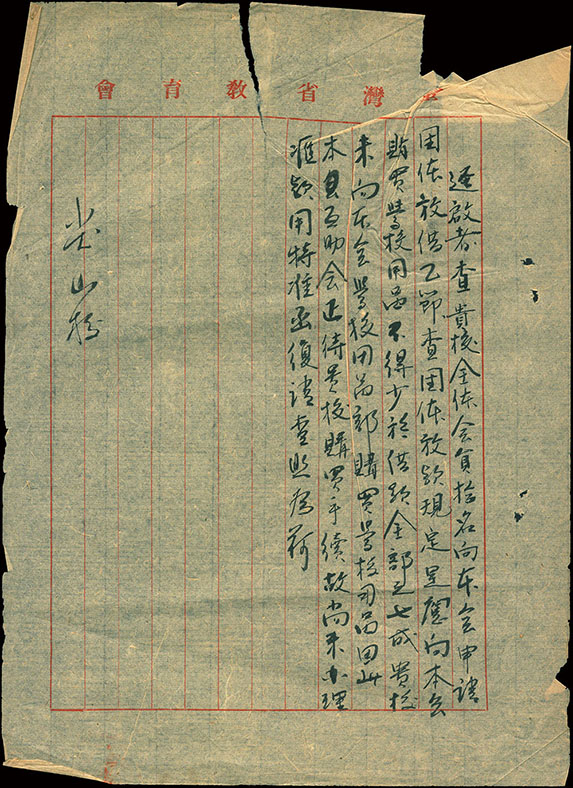 灣省教育會
逕啟者查貴校全体会員拾名向本会申請
団体放借乙節查団体放款規定是應向本会
購買學校用品不得少於借款全部之七成貴校
未向本会學校用品部購買學校用品因此
本县互助会正待貴校購買手續故尚未办理
匯款用特准函復請查照为荷
尖山校